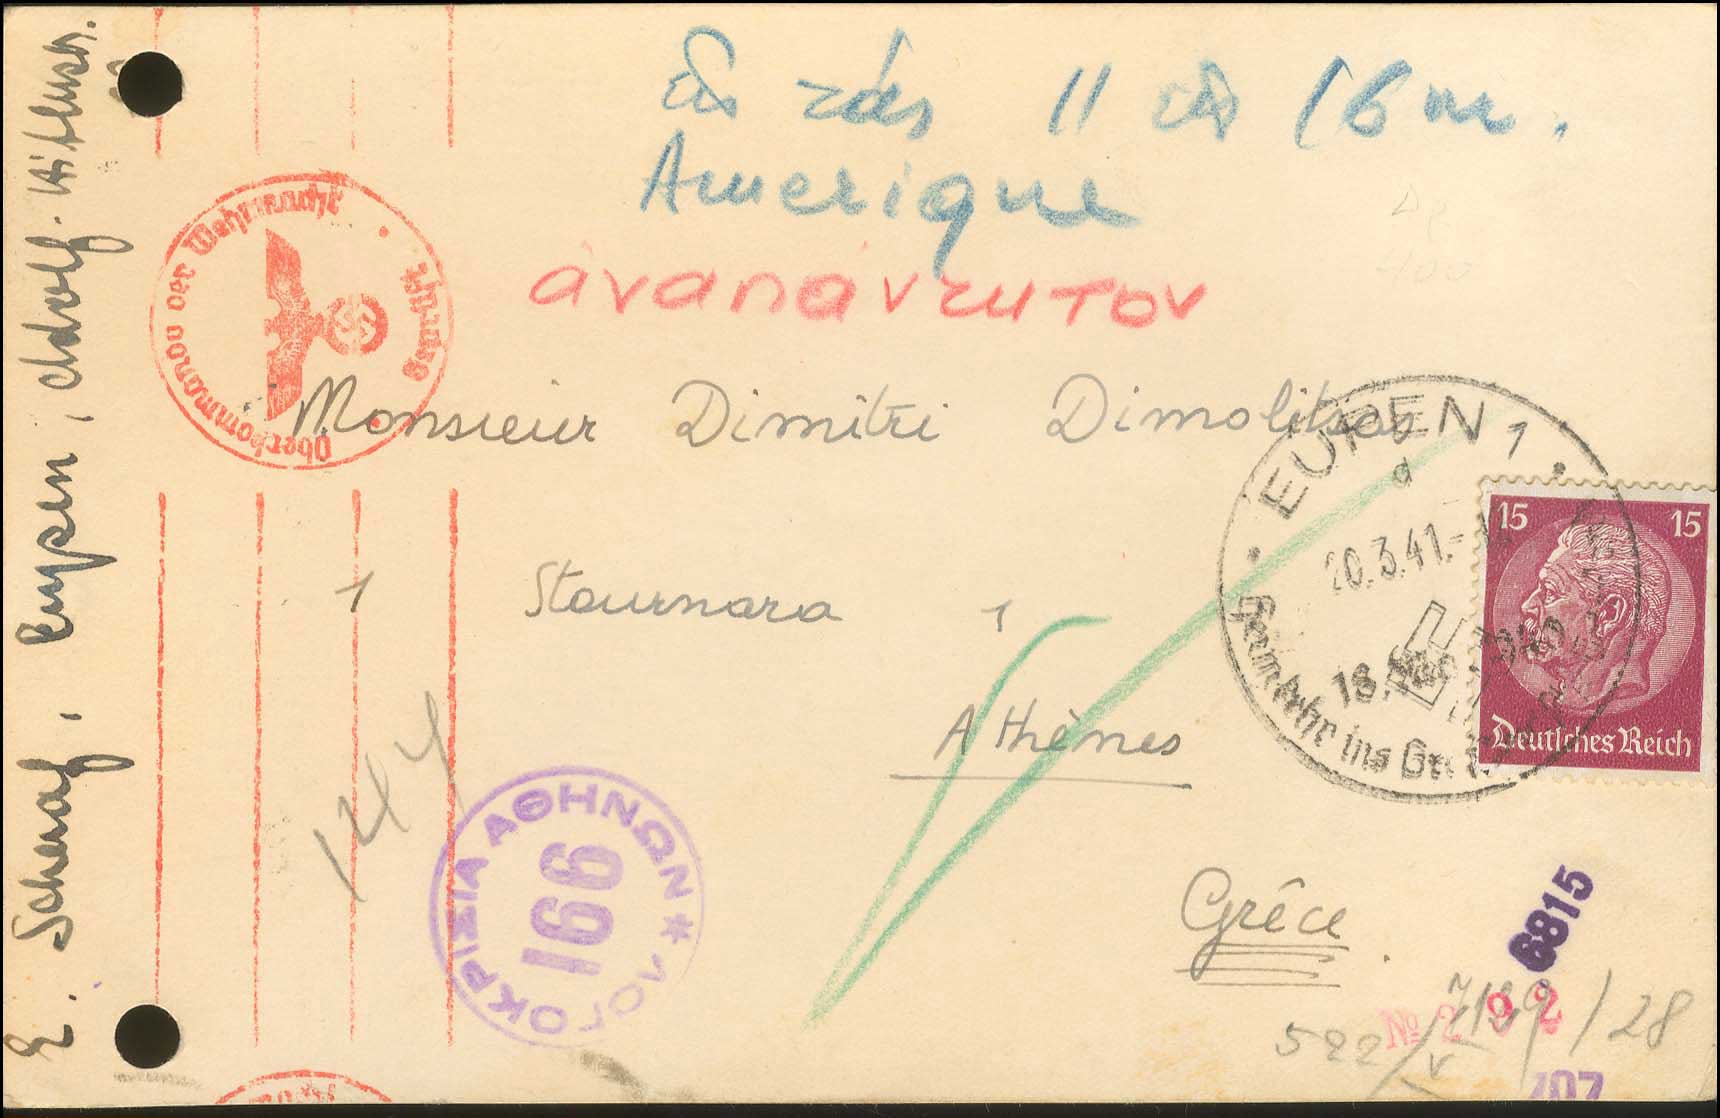 εἰς τὰς 11 εἰς 16 m.
Amerique
ἀναπάντητον
Monsieur Dimitri Dimolitsas
1 Stournara 1
Athènes
Grêce
E. Schenaf. Eupen, Adolf-Hitlerstr.
Oberkommando der Wehrmacht
geprüft
EUPEN 1
d
20.3.41.-
18. Mai 1940
Heimkehr ins
15 15
Deutsches Reich
ΛΟΓΟΚΡΙΣΙΑ ΑΘΗΝΩΝ *
166
144
6815
No 2 92
522 / 7129 / 28
707